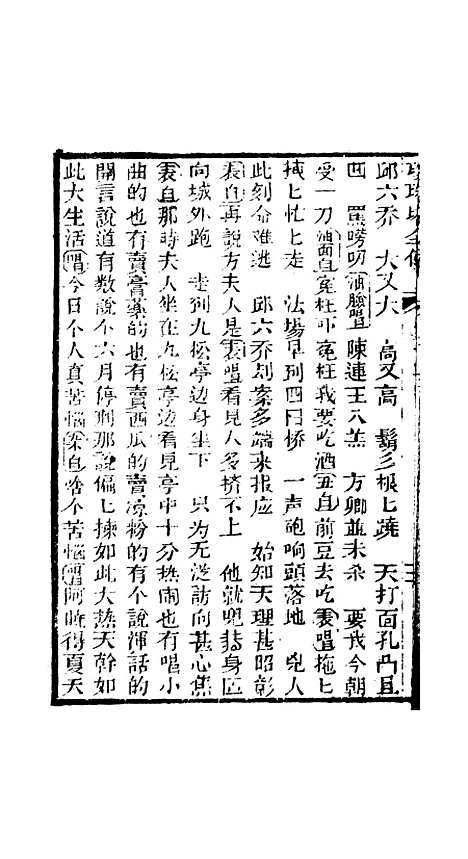 邱六乔 大又大 高又高 鬍多根匕蹺 天打面孔凸且
凹 罵唠叨油臉唱陳連王八羔 方卿並未杀 要我今朝
受一刀面自冤枉吓冤枉我要吃酒丑自前豆去吃衰唱拖匕
拽匕忙匕走 法塲早到四日桥 一声砲响頭落地 兇人
此刻命难逃 邱六乔刦案多端来报应 始知天理甚昭彰
衰自再說方夫人是衰唱看見人多挤不上 他就兜轉身区
向城外跑 走到九松亭边身坐下 只为无
訪问甚心焦
衰自那時夫人坐在九松亭边看見亭中十分热闹也有唱小
曲的也有賣膏薬的也有賣西瓜的賣凉粉的有个說渾話的
開言說道有数說个六月停刑那說偏匕揀如此大热天幹如
此大生活唱今日个人真苦惱衆白啥个苦惱唱阿曉得夏天